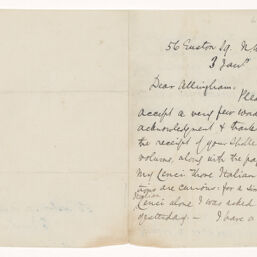 56 Euston Sq. N.W
3 Jan
Dear Allingham,
Pleas
accept a very few words
acknowledgment & thanks
the receipt of your Shelley
volume, along with the pa
My Cenci those Italian
tions are curious: for a sin
Italian
Cenci alone I was asked
yesterday. — I have a